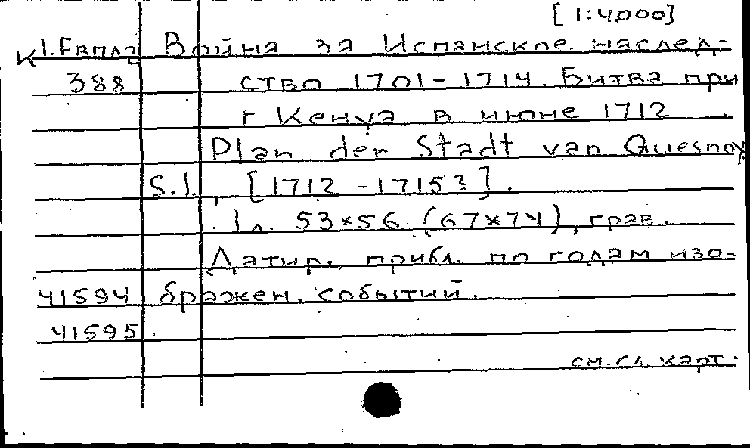 [1:4000]
К 1.Fвплз Война за Испанское наслед-
388 ство 1701-1714. Битва при
г Кенуа в июне 1712
Plan der Stadt van Quesnoy
S.l., [1712-1715?].
1 л. 53×56 (67×74), грав.
Датир. прибл. по годам изо-
41594 бражен. событий.
41595.
см. сл. карт.